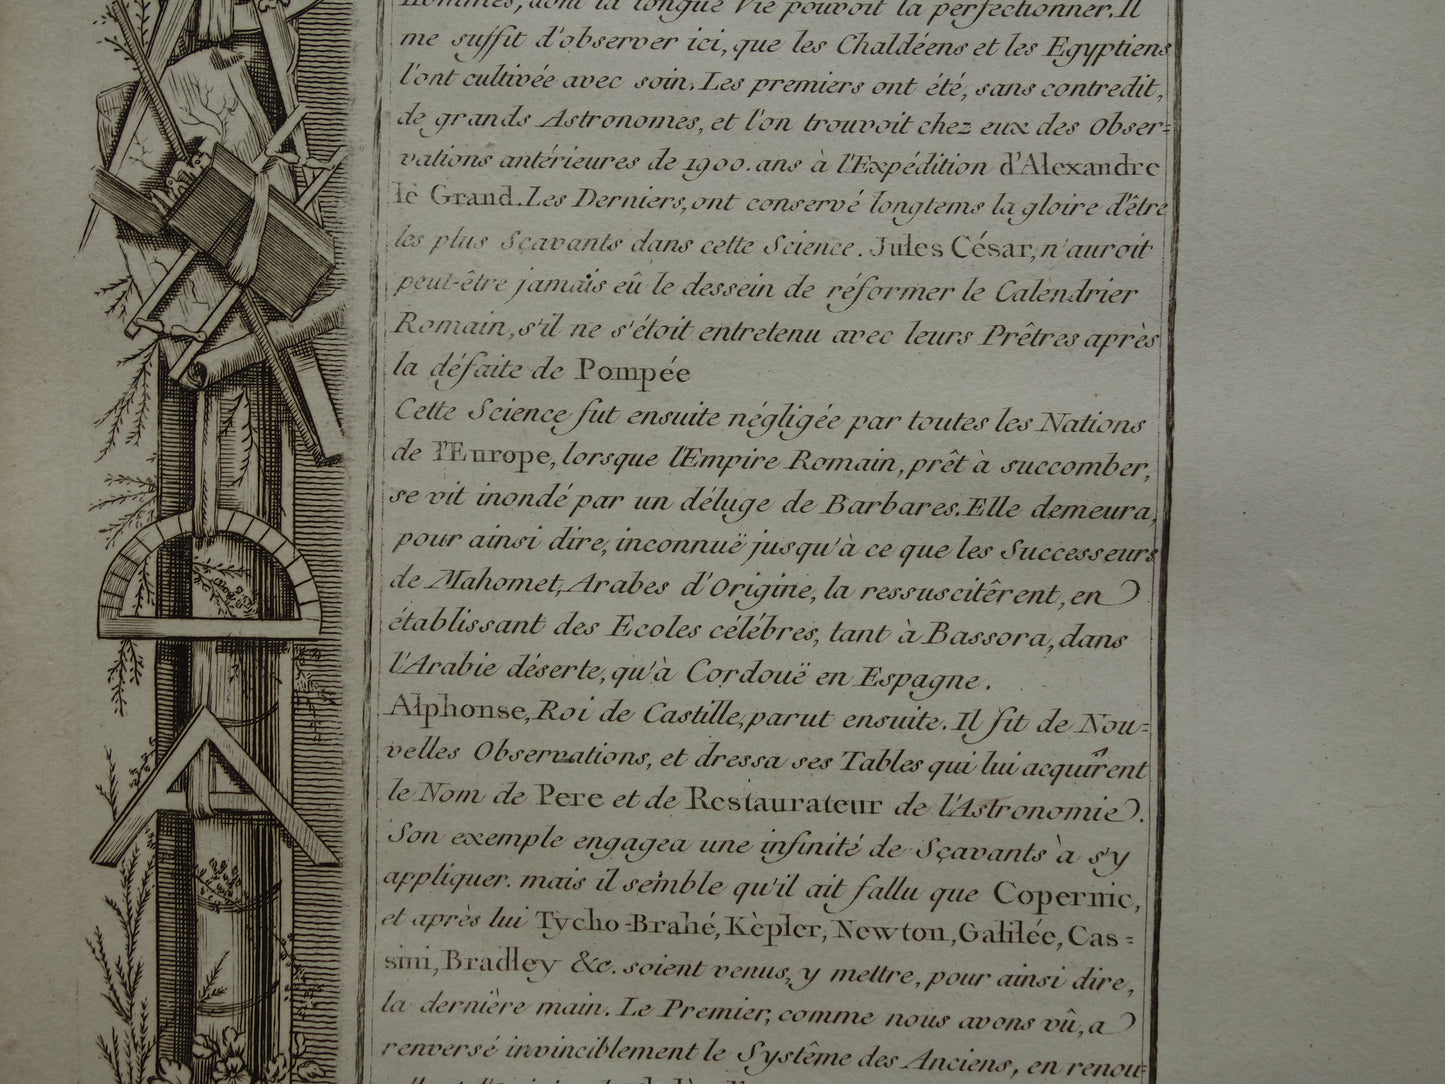 Hommes, dont la longue Vie pouvoit la perfectionner. Il
me suffit d'observer ici, que les Chaldéens et les Egyptiens
l'ont cultivée avec soin. Les premiers ont été, sans contredit,
de grands Astronomes, et l'on trouvoit chez eux des Obser=
vations antérieures de 1900. ans à l'Expédition d'Alexandre
le Grand. Les Derniers, ont conservé longtems la gloire d'être
les plus Sçavants dans cette Science. Jules César, n'auroit
peut-être jamais eû le dessein de réformer le Calendrier
Romain, s'il ne s'étoit entretenu avec leurs Prêtres après
la défaite de Pompée
Cette Science fut ensuite négligée par toutes les Nations
de l'Europe, lorsque l'Empire Romain, prêt à succomber,
se vit inondé par un déluge de Barbares. Elle demeura,
pour ainsi dire, inconnuë jusqu'à ce que les Successeurs
de Mahomet, Arabes d'Origine, la ressuscitêrent, en
établissant des Ecoles célébres, tant à Bassora, dans
l'Arabie déserte, qu'à Cordouë en Espagne.
Alphonse, Roi de Castille, parut ensuite. Il fit de Nou=
velles Observations, et dressa ses Tables qui lui acquîrent
le Nom de Pere et de Restaurateur de l'Astronomie.
Son exemple engagea une infinité de Sçavants à s'y
appliquer. mais il semble qu'il ait fallu que Copernic,
et après lui Tycho-Brahé, Kèpler, Newton, Galilée, Cas=
sini, Bradley &c. soient venus, y mettre, pour ainsi dire,
la dernière main. Le Premier, comme nous avons vû, a
renversé invinciblement le Systême des Anciens, en renou-